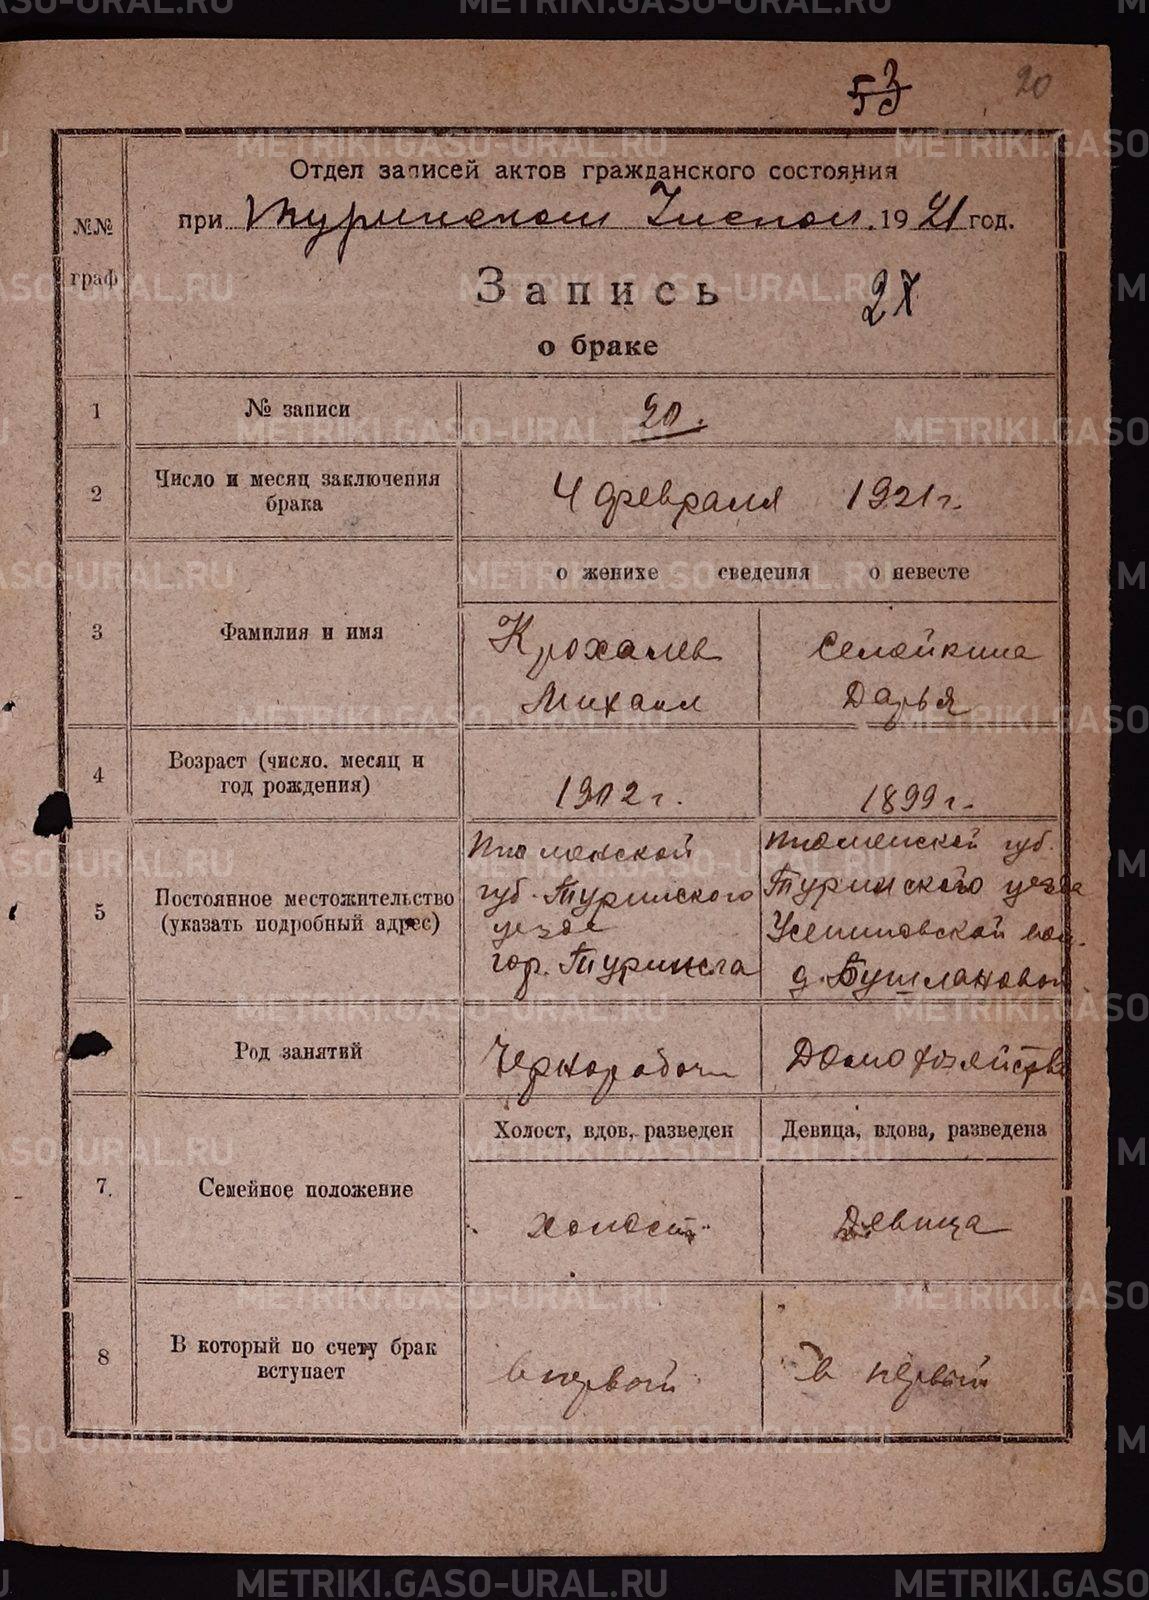 METRIKI.GASO-URAL.RU
20
Отдел записей актов гражданского состояния
при Туринском 1921 год.
№№ граф
Запись
27
о браке
1 № записи 20.
2 Число и месяц заключения
брака
4 февраля 1921 г.
о женихе сведения о невесте
3 Фамилия и имя
Крохалев
Михаил
Семейкина
Дарья
4 Возраст (число, месяц и
год рождения)
1902 г.
1899 г.
5 Постоянное местожительство
(указать подробный адрес)
Тюменской
губ. Туринского
уезда
гор. Туринска
Тюменской губ.
Туринского уезда
Усениновской вол.
д. Бушлановой
Род занятий
Чернорабочий
Домохозяйство
Холост, вдов, разведен
Девица, вдова, разведена
7. Семейное положение
холост
Девица
8 В который по счету брак
вступает
в первой
в первый